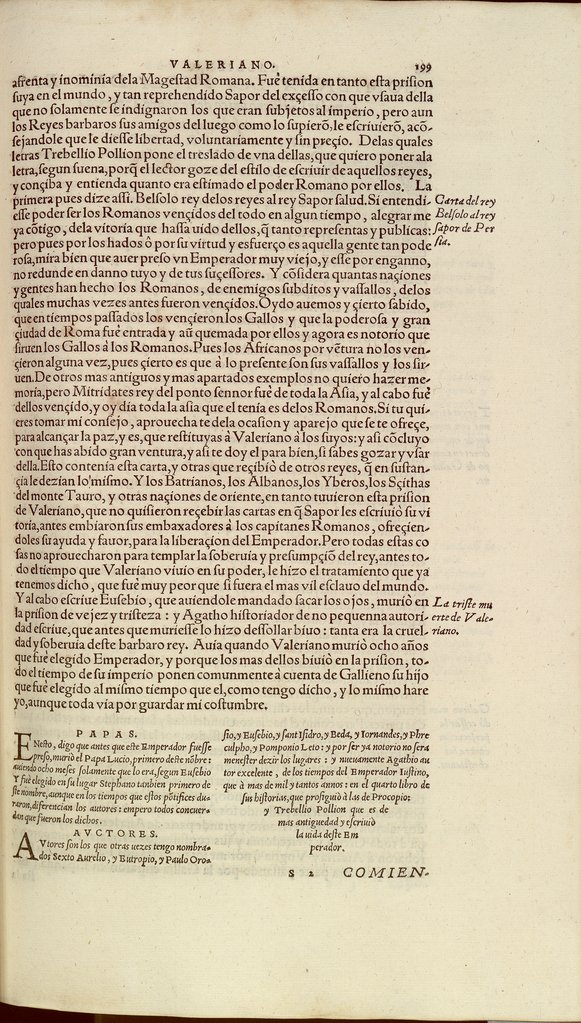 VALERIANO. 199
afrenta y inominía dela Magestad Romana. Fuè tenída en tanto esta prision
suya en el mundo, y tan reprehendído Sapor del exçesso con que vsaua della
que no solamente se indígnaron los que eran subjetos al imperio, pero aun
los Reyes barbaros sus amígos del luego como lo supierõ, le escríuierõ, acõ-
sejandole que le diesse libertad, voluntaríamente y sin preçio. Delas quales
letras Trebellio Pollíon pone el treslado de vna dellas, que quiero poner ala
letra, segun suena, porq̃ el lector goze del estílo de escríuir de aquellos reyes,
y conçíba y entíenda quanto era estímado el poder Romano por ellos. La
primera pues díze assi. Belsolo rey delos reyes al rey Sapor salud. Si entendi-
esse poder ser los Romanos vençídos del todo en algun tiempo, alegrar me
ya cõtigo, dela vitoría que hassa uído dellos, q̃ tanto representas y publicas:
pero pues por los hados ô por su virtud y esfuerço es aquella gente tan pode
rosa, míra bíen que auer preso vn Emperador muy viejo, y esse por enganno,
no redunde en danno tuyo y de tus suçessores. Y cõsidera quantas naçiones
y gentes han hecho los Romanos, de enemígos subdítos y vassallos, delos
quales muchas vezes antes fueron vençídos. Oydo auemos y çierto sabído,
que en tiempos passados los vençieron los Gallos y que la poderosa y gran
çiudad de Roma fuè entrada y aũ quemada por ellos y agora es notorio que
siruen los Gallos à los Romanos. Pues los Africanos por vẽtura no los ven-
çieron alguna vez, pues çierto es que à lo presente son sus vassallos y los sir-
uen. De otros mas antíguos y mas apartados exemplos no quiero hazer me-
moría, pero Mitridates rey del ponto sennor fuè de toda la Asía, y al cabo fuè
dellos vençído, y oy día toda la asia que el tenía es delos Romanos. Si tu quí-
eres tomar mi consejo, aprouecha te dela ocasíon y aparejo que se te ofreçe,
para alcançar la paz, y es, que restítuyas à Valeríano à los suyos: y asi cõcluyo
con que has abído gran ventura, y asi te doy el para bien, si sabes gozar y vsar
della. Esto contenía esta carta, y otras que reçibíó de otros reyes, q̃ en sustan-
çía le dezían lo mísmo. Y los Batríanos, los Albanos, los Yberos, los Sçíthas
del monte Tauro, y otras naçiones de oriente, en tanto tuuíeron esta prision
de Valeríano, que no quisieron reçebir las cartas en q̃ Sapor les escríuíò su ví
toría, antes embíaron sus embaxadores à los capitanes Romanos, ofreçien-
doles su ayuda y fauor, para la liberaçíon del Emperador. Pero todas estas co
sas no aprouecharon para templar la soberuía y presumpçíõ del rey, antes to-
do el tíempo que Valeríano víuío en su poder, le hízo el tratamíento que ya
tenemos díchò, que fuè muy peor que si fuera el mas víl esclauo del mundo.
Y al cabo escríue Eusebío, que auíendole mandado sacar los ojos, muríò en
la prision de vejez y trísteza: y Agatho hístoríador de no pequenna autorí-
dad escríue, que antes que muriesse lo hizo dessollar bíuo: tanta era la cruel-
dad y soberuía deste barbaro rey. Auía quando Valeríano murió ocho años
que fuè elegído Emperador, y porque los mas dellos bíuíò en la prision, to-
do el tíempo de su imperio ponen comunmente à cuenta de Gallíeno su hijo
que fuè elegído al mísmo tiempo que el, como tengo dícho, y lo mísmo hare
yo, aunque toda vía por guardar mí costumbre.
Carta del rey
Belsolo al rey
sapor de Per
sia.
La triste mu
erte de Vale-
riano.
PAPAS.
ENesto, digo que antes que este Emperador fuesse
preso, murió el Papa Lucio, primero deste nõbre:
auiendo ocho meses solamente que lo era, segun Eusebio
Y fuè elegido en su lugar Stephano tanbien primero de
ste nombre, aunque en los tiempos que estos põtifices du-
raron, diferencian los autores: empero todos concuer-
dan que fueron los dichos.
AVCTORES.
AVtores son los que otras uezes tengo nombra-
dos Sexto Aurelio, y Eutropio, y Paulo Oro-
sio, y Eusebio, y sant Isidro, y Beda, y Iornandes, y Phre
culpho, y Pomponio Leto: y por ser ya notorio no sera
menester dezir los lugares: y nueuamente Agathio au
tor excelente, de los tiempos del Emperador Iustino,
que à mas de mil y tantos annos: en el quarto libro de
sus historias, que prosiguiò à las de Procopio:
y Trebellio Pollion que es de
mas antiguedad y escriuiò
la uida deste Em
perador.
S 2 COMIEN-